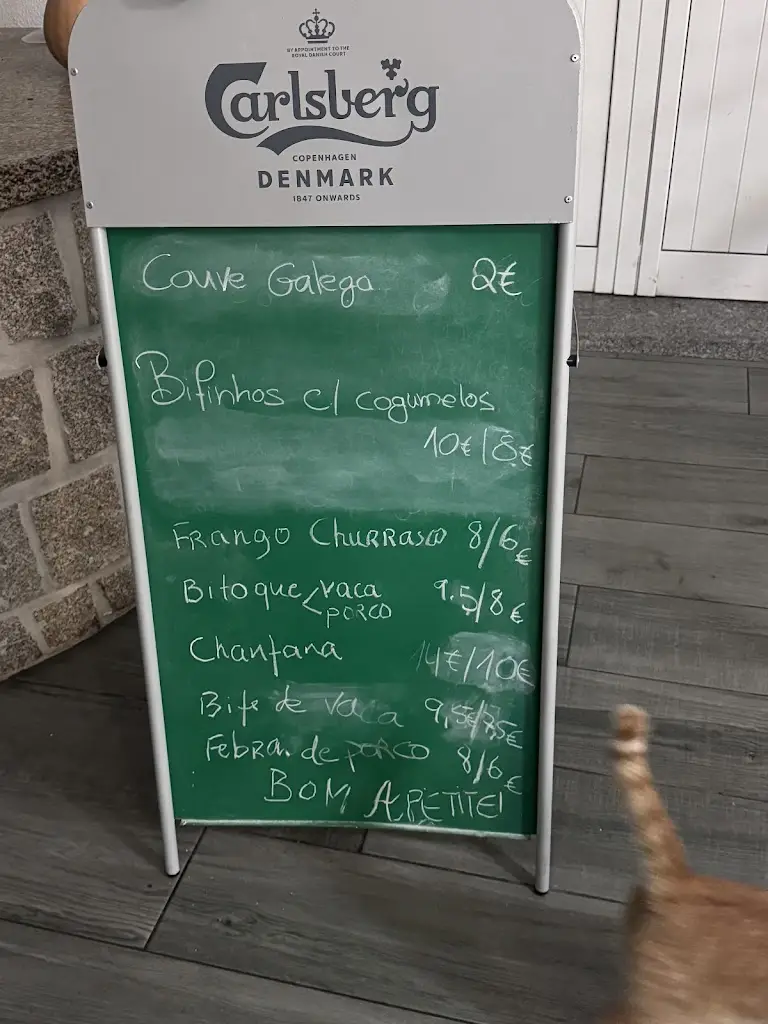 BY APPOINTMENT TO THE
ROYAL DANISH COURT
Carlsberg
COPENHAGEN
DENMARK
1847 ONWARDS
Couve Galega 2€
Bifinhos c/ cogumelos
10€/8€
FRango ChuRRasco 8/6€
Bitoque < vaca 9.5/8€
PORCO
Chanfana 14€/10€
Bife de vaca 9,5€/7,5€
Febra. de porco 8/6€
BOM APETITE!